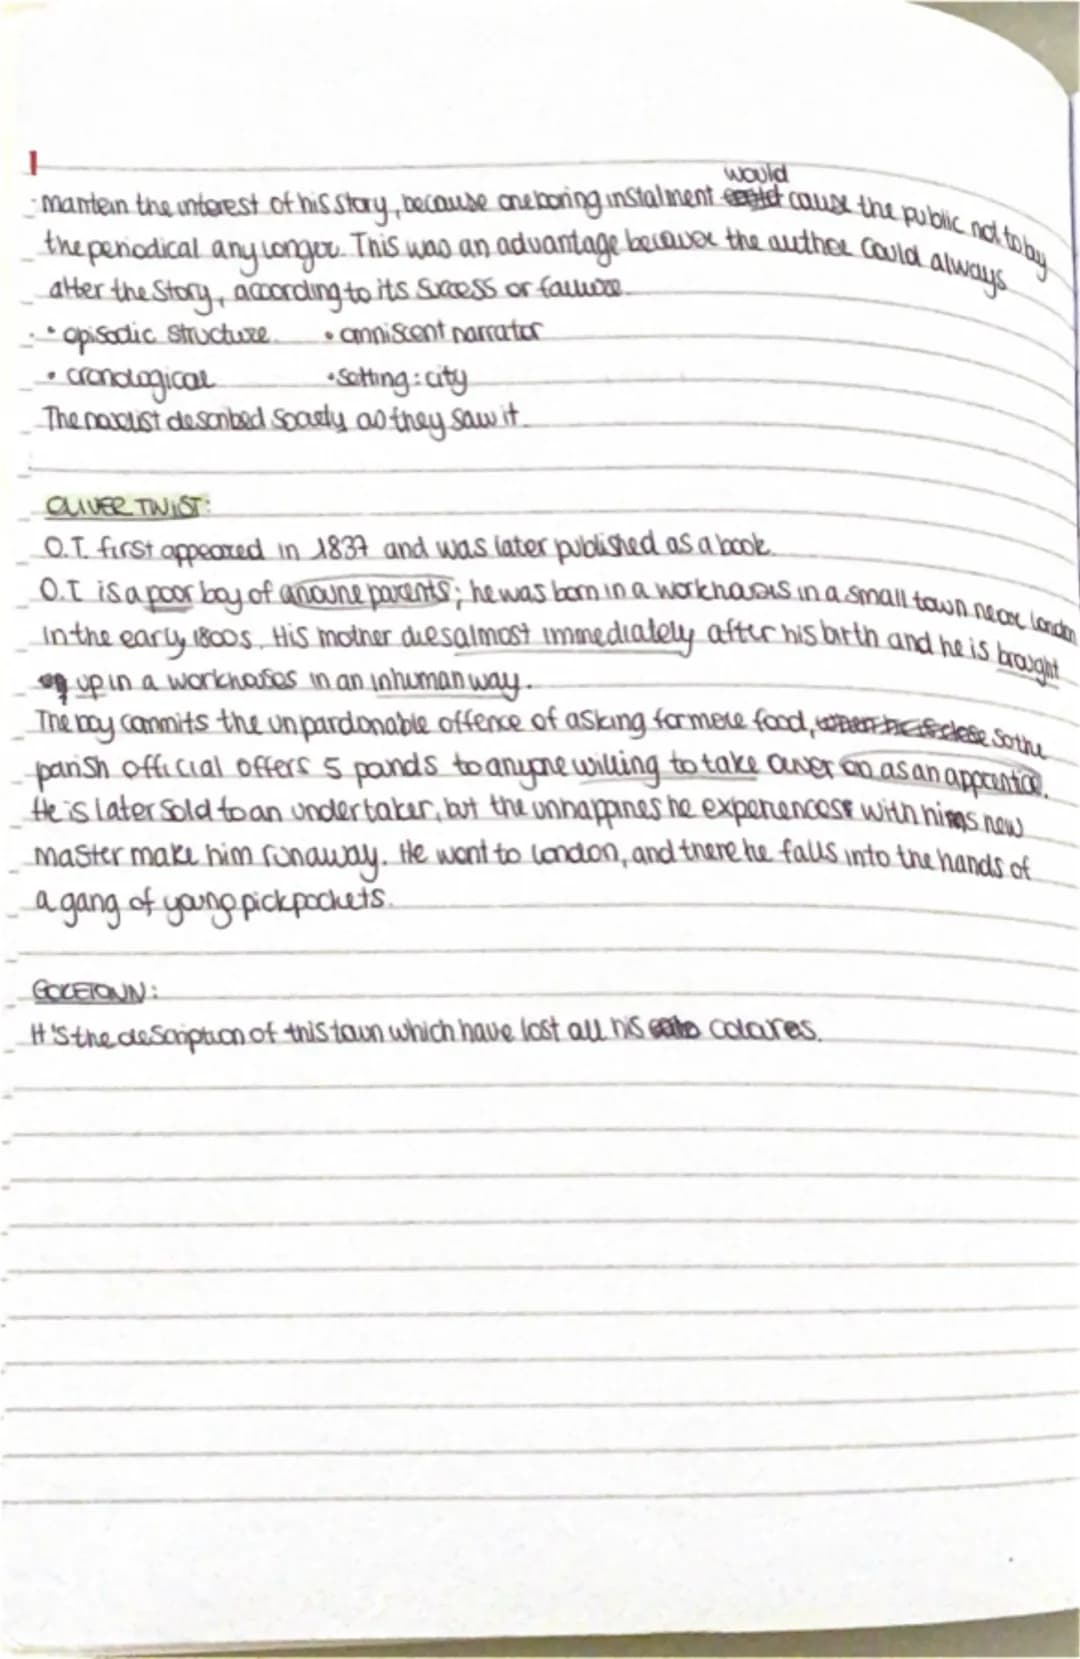 would
mantein the interest of his story, because one boring instalment cause the public not to by
the periodical any longer. This was an advantage because the author could always
alter the story, according to its success or failure.
• episodic structure. • omniscent narrator
• cronological • Setting: city
The novelist described Society as they saw it.
OLIVER TWIST:
O.T. first appeared in 1837 and was later published as a book.
O.T is a poor boy of parents; he was born in a workhouses in a small town near London
in the early 1800s. His mother dies almost immediately after his birth and he is brought
up in a workhouses in an inhuman way.
The boy commits the unpardonable offence of asking for more food, so the
parish official offers 5 pounds to anyone willing to take Oliver on as an apprentice.
He is later sold to an undertaker, but the unhappines he experiences with new
master make him runaway. He went to London, and there he falls into the hands of
a gang of young pickpockets.
COKETOWN:
It's the description of this town which have lost all his colores.